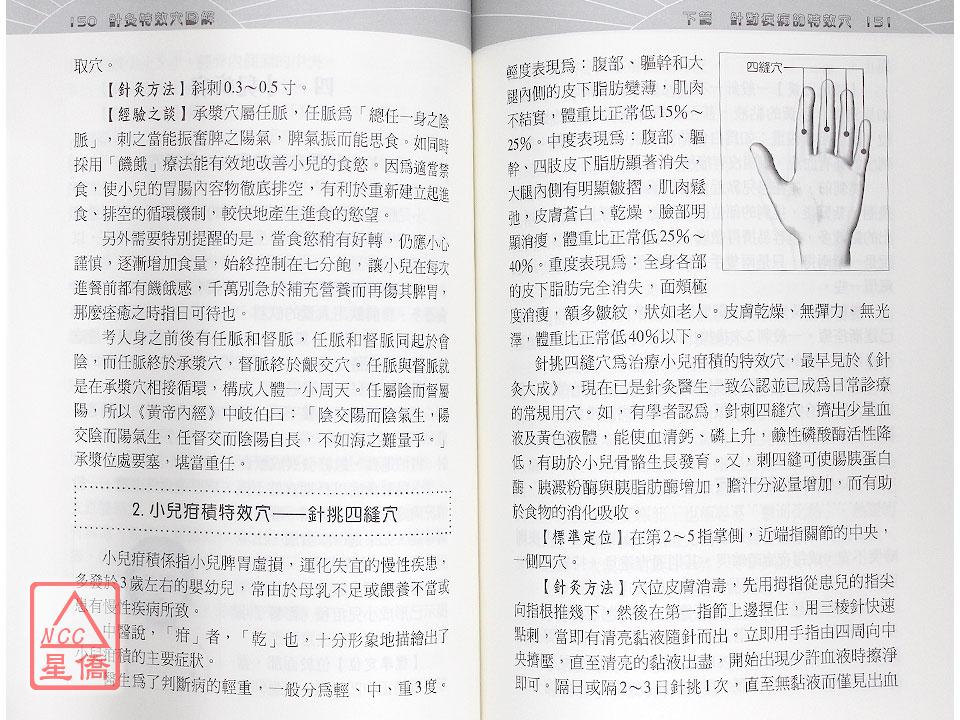 150 針灸特效穴圖解
取穴。
【針灸方法】斜刺0.3～0.5寸。
【經驗之談】承漿穴屬任脈，任脈爲「總任一身之陰
脈」，刺之當能振奮脾之陽氣，脾氣振而能思食。如同時
採用「饑餓」療法能有效地改善小兒的食慾。因爲適當禁
食，使小兒的胃腸內容物徹底排空，有利於重新建立起進
食、排空的循環機制，較快地產生進食的慾望。
另外需要特別提醒的是，當食慾稍有好轉，仍應小心
謹慎，逐漸增加食量，始終控制在七分飽，讓小兒在每次
進餐前都有饑餓感，千萬別急於補充營養而再傷其脾胃，
那麼痊癒之時指日可待也。
考人身之前後有任脈和督脈，任脈和督脈同起於會
陰，而任脈終於承漿穴，督脈終於齦交穴。任脈與督脈就
是在承漿穴相接循環，構成人體一小周天。任屬陰而督屬
陽，所以《黃帝內經》中岐伯曰：「陰交陽而陰氣生，陽
交陰而陽氣生，任督交而陰陽自長，不如海之難量乎。」
承漿位處要塞，堪當重任。
2. 小兒疳積特效穴——針挑四縫穴
小兒疳積係指小兒脾胃虛損，運化失宜的慢性疾患，
多發於3歲左右的嬰幼兒，常由於母乳不足或餵養不當或
患有慢性疾病所致。
中醫說，「疳」者，「乾」也，十分形象地描繪出了
小兒疳積的主要症狀。
醫生爲了判斷病的輕重，一般分爲輕、中、重3度。
NCC
星僑
下篇 針對疾病的特效穴 151
輕度表現爲：腹部、軀幹和大
腿內側的皮下脂肪變薄，肌肉
不結實，體重比正常低15%～
25%。中度表現爲：腹部、軀
幹、四肢皮下脂肪顯著消失，
大腿內側有明顯皺摺，肌肉鬆
弛，皮膚蒼白、乾燥，臉部明
顯消瘦，體重比正常低25%～
40%。重度表現爲：全身各部
的皮下脂肪完全消失，面頰極
度消瘦，額多皺紋，狀如老人。皮膚乾燥、無彈力、無光
澤，體重比正常低40%以下。
四縫穴
針挑四縫穴爲治療小兒疳積的特效穴，最早見於《針
灸大成》，現在已是針灸醫生一致公認並已成爲日常診療
的常規用穴。如，有學者認爲，針刺四縫穴，擠出少量血
液及黃色液體，能使血清鈣、磷上升，鹼性磷酸酶活性降
低，有助於小兒骨骼生長發育。又，刺四縫可使腸胰蛋白
酶、胰澱粉酶與胰脂肪酶增加，膽汁分泌量增加，而有助
於食物的消化吸收。
【標準定位】在第2～5指掌側，近端指關節的中央，
一側四穴。
【針灸方法】穴位皮膚消毒，先用拇指從患兒的指尖
向指根推幾下，然後在第一指節上邊捏住，用三棱針快速
點刺，當即有清亮黏液隨針而出。立即用手指由四周向中
央擠壓，直至清亮的黏液出盡，開始出現少許血液時擦淨
即可。隔日或隔2～3日針挑1次，直至無黏液而僅見出血